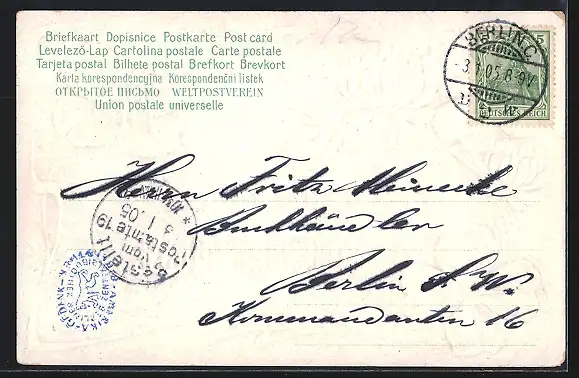 Briefkaart Dopisnice Postkarte Post card
Levelező-Lap Cartolina postale Carte postale
Tarjeta postal Bilhete postal Brefkort Brevkort
Karta korespondencyjna Korespondenční lístek
ОТКРЫТОЕ ПИСЬМО WELTPOSTVEREIN
Union postale universelle
BERLIN, C.
3.1.05.8-9V.
5
DEUTSCHES REICH
Herrn Fritz Meinecke
Buchhändler
Berlin S. W.
Kommandanten 16
Bestellt
vom
Postamte 19
3/1.05